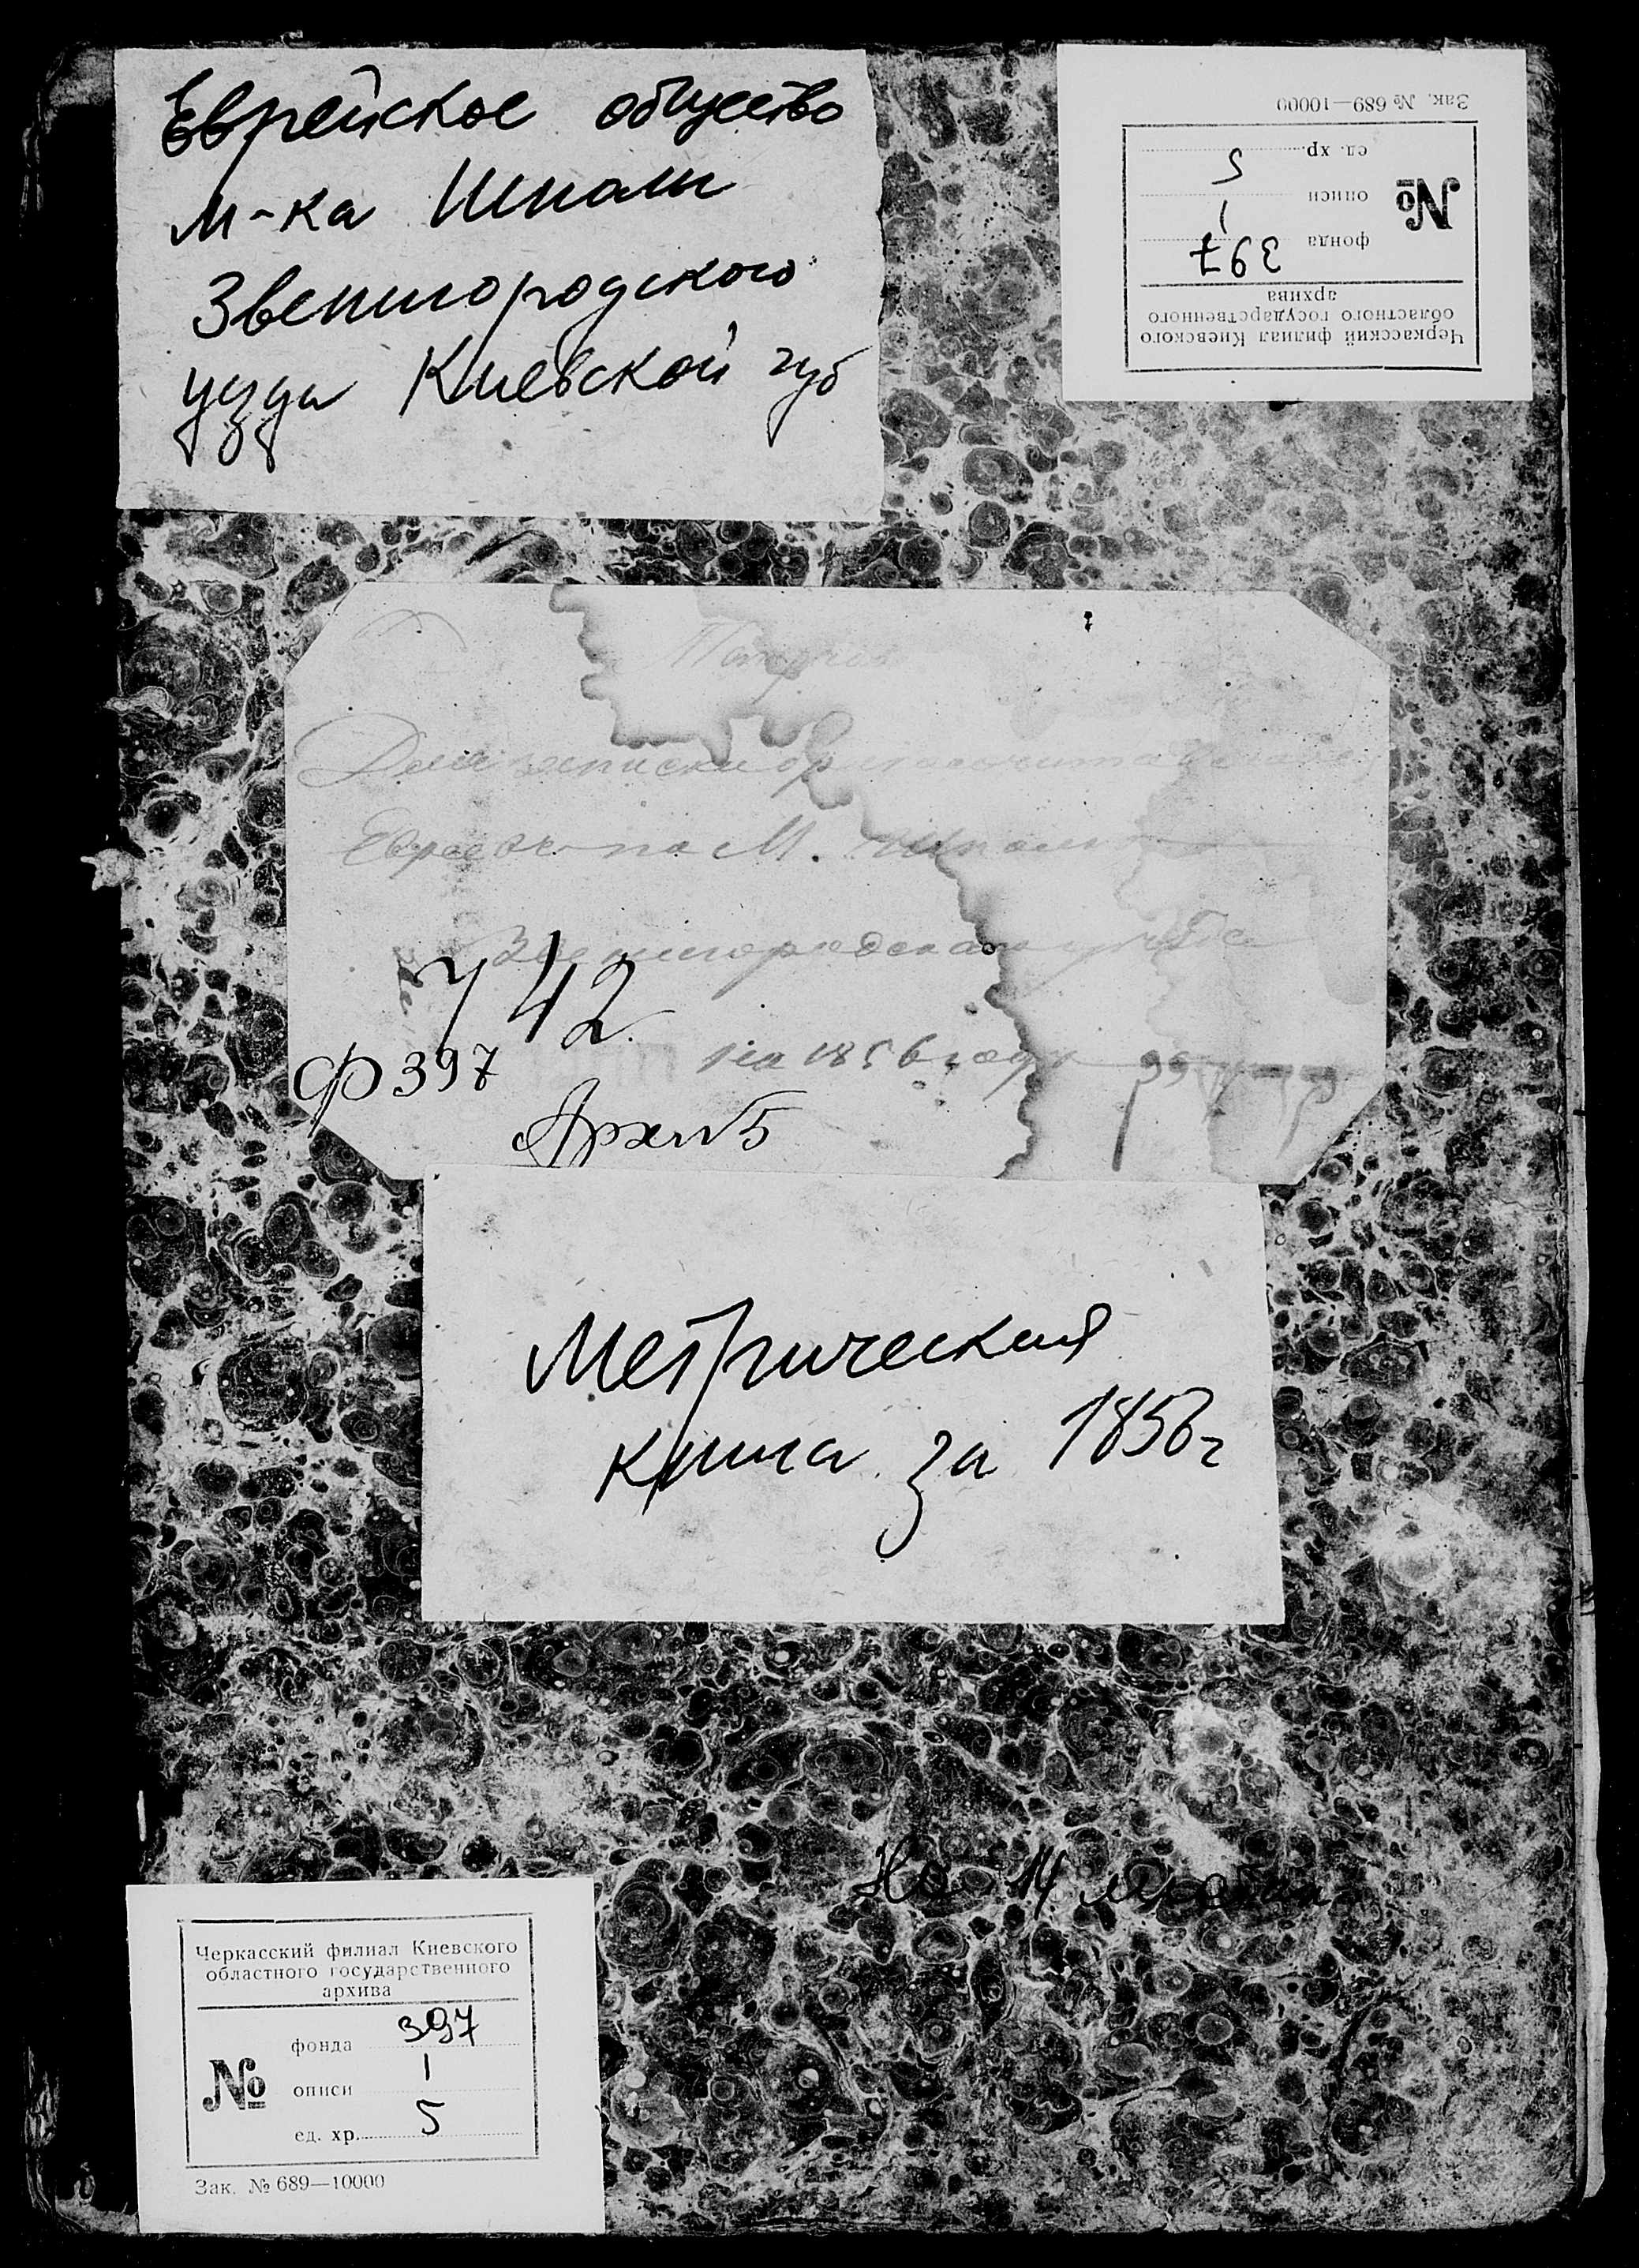 Еврейское общество
м-ка Шполы
Звенигородского
уезда Киевской губ
Зак. № 689—10000
Черкасский филиал Киевского
областного государственного
архива
№
фонда 397
описи 1
ед. хр. 5
Евреевъ по М. Шполы
Звенигородскаго уѣзда
742
на 1856 годъ
Ф 397
Арх №5
Метрическая
книга за 1856 г
На 14 листах
Черкасский филиал Киевского
областного государственного
архива
№
фонда 397
описи 1
ед. хр. 5
Зак. № 689—10000